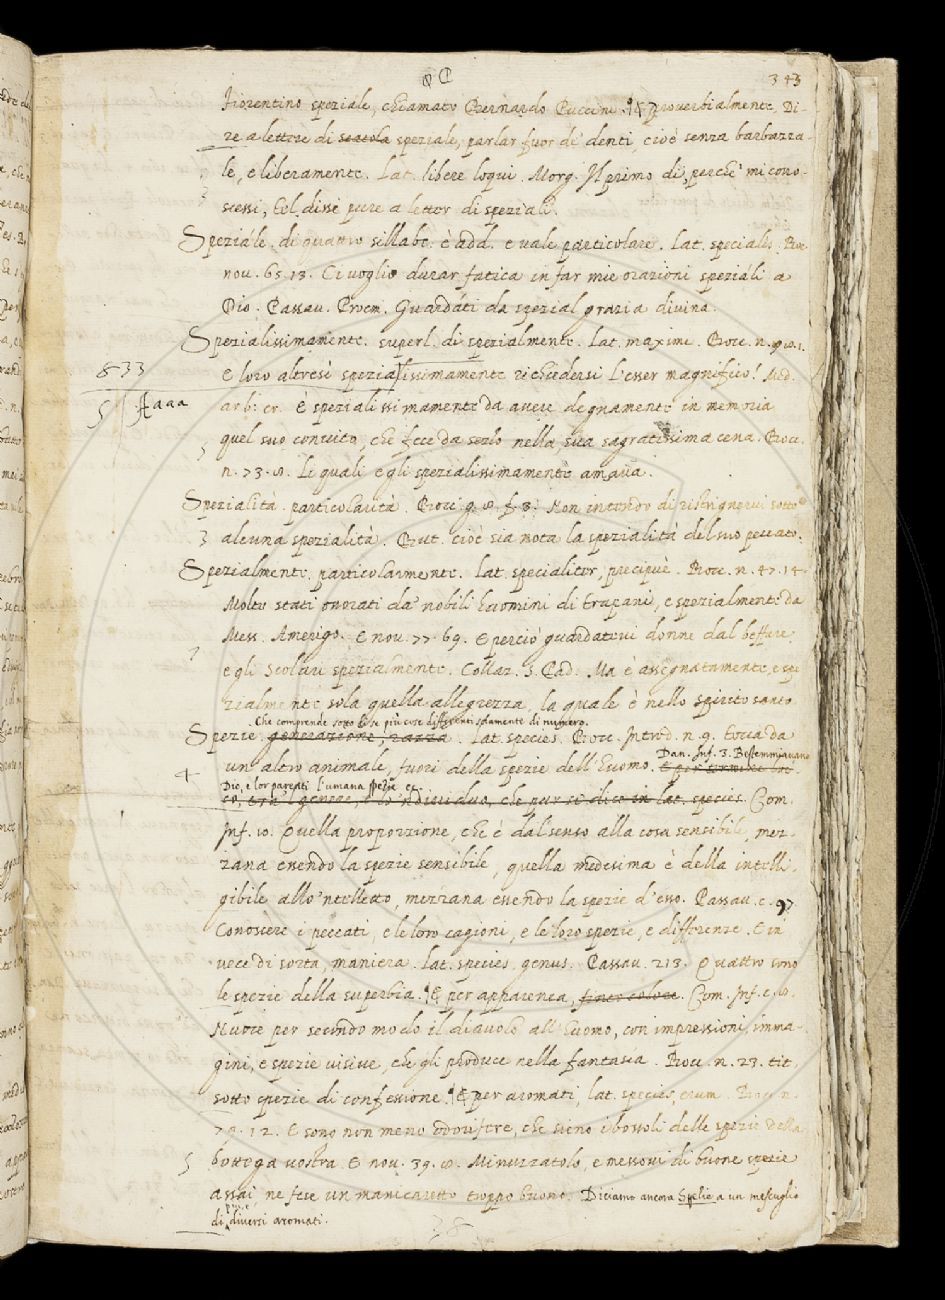 343
fiorentino speziale, chiamato Bernardo Puccini. ¶ E proverbialmente, Di-
re a lettere di scatola speziale, parlar fuor de' denti, cioè senza barbazza-
le, e liberamente. Lat. libere loqui. Morg. Il primo dì, perche' mi cono-
scessi, Tel dissi pure a letter di speziali.
Speziale. di quattro sillabe. è add. e vale particolare. Lat. specialis. Boc.
nov. 65. 13. Ci voglio durar fatica in far mie orazioni speziali a
Dio. Passav. Proem. Guardati da spezial grazia divina.
Spezialissimamente. superl. di spezialmente. Lat. maxime. Bocc. n.
E loro altresì spezialissimamente richiedersi l'esser magnifico! Med.
833
5 Aaaa
arb. cr. È spezialissimamente da avere degnamente in memoria
quel suo convito, che fece da sezzo nella sua sagratissima cena. Bocc.
n. 73. Li quali egli spezialissimamente amava.
Spezialità. particolarità. Bocc. g. f. 3. Non intendo di ristrignervi sotto
3 alcuna spezialità. But. cioè sia nota la spezialità del suo peccato.
Spezialmente. particolarmente. Lat. specialiter, precipuè. Bocc. n. 47. 14.
Molto stati onorati da' nobili huomini di Trapani, e spezialmente da
Mess. Amerigo. E nov. 77. 69. E perciò guardatevi donne dal beffare,
e gli Scolari spezialmente. Collaz. S. Pad. Ma è assegnatamente, e spe
zialmente sola quella allegrezza, la quale è nello spirito santo.
Che comprende sotto di se più cose differenti solamente di numero.
Spezie. generazione, razza. Lat. species. Bocc. Introd. n. 9. tocca da
Dan. Inf. 3. Bestemmiavano
4 un' altro animale, fuori della spezie dell' huomo. E per termine lo-
Dio, e lor parenti l'umana spezie ec.
co, tra 'l genere, e lo 'ndividuo, che pur si dice in lat. species. Com.
Inf. 10. Quella proporzione, che è dal senso alla cosa sensibile, mez-
zana essendo la spezie sensibile, quella medesima è della intelli-
gibile allo 'ntelletto, mezzana essendo la spezie d'esso. Passav. c. 97.
Conoscere i peccati, e le loro cagioni, e le loro spezie, e differenze. E in
vece di sorta, maniera. Lat. species, genus. Passav. 213. Quattro sono
le spezie della superbia. ¶ E per apparenza, finer colore. Com. Inf. c. 10.
Nuoce per secondo modo il diavolo all' huomo, con impressioni, imma-
gini, e spezie visive, che gli produce nella fantasia. Bocc. n. 23. tit.
sotto spezie di confessione. ¶ E per aromati, lat. species, erum. Bocc. n.
79. 12. E sono non meno odorifere, che sieno i bossoli delle spezie della
5 bottega vostra. E nov. 39. Minuzzatolo, e messovi di buone spezie
assai ne fece un manicaretto troppo buono. Diciamo ancora Spezie a un mescuglio
di più, e diversi aromati.